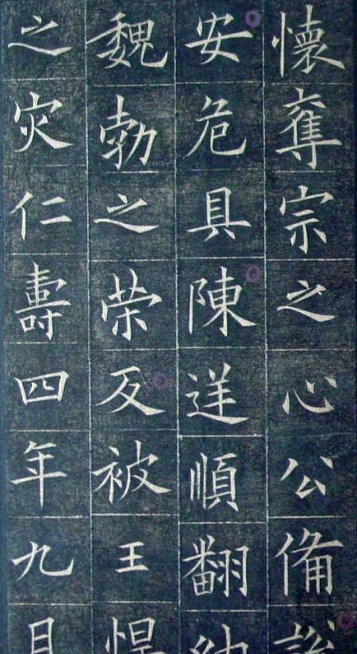 懷奪宗之心公俻說
安危具陳逆順翻納
魏勃之荣反被王悍
之灾仁壽四年九月